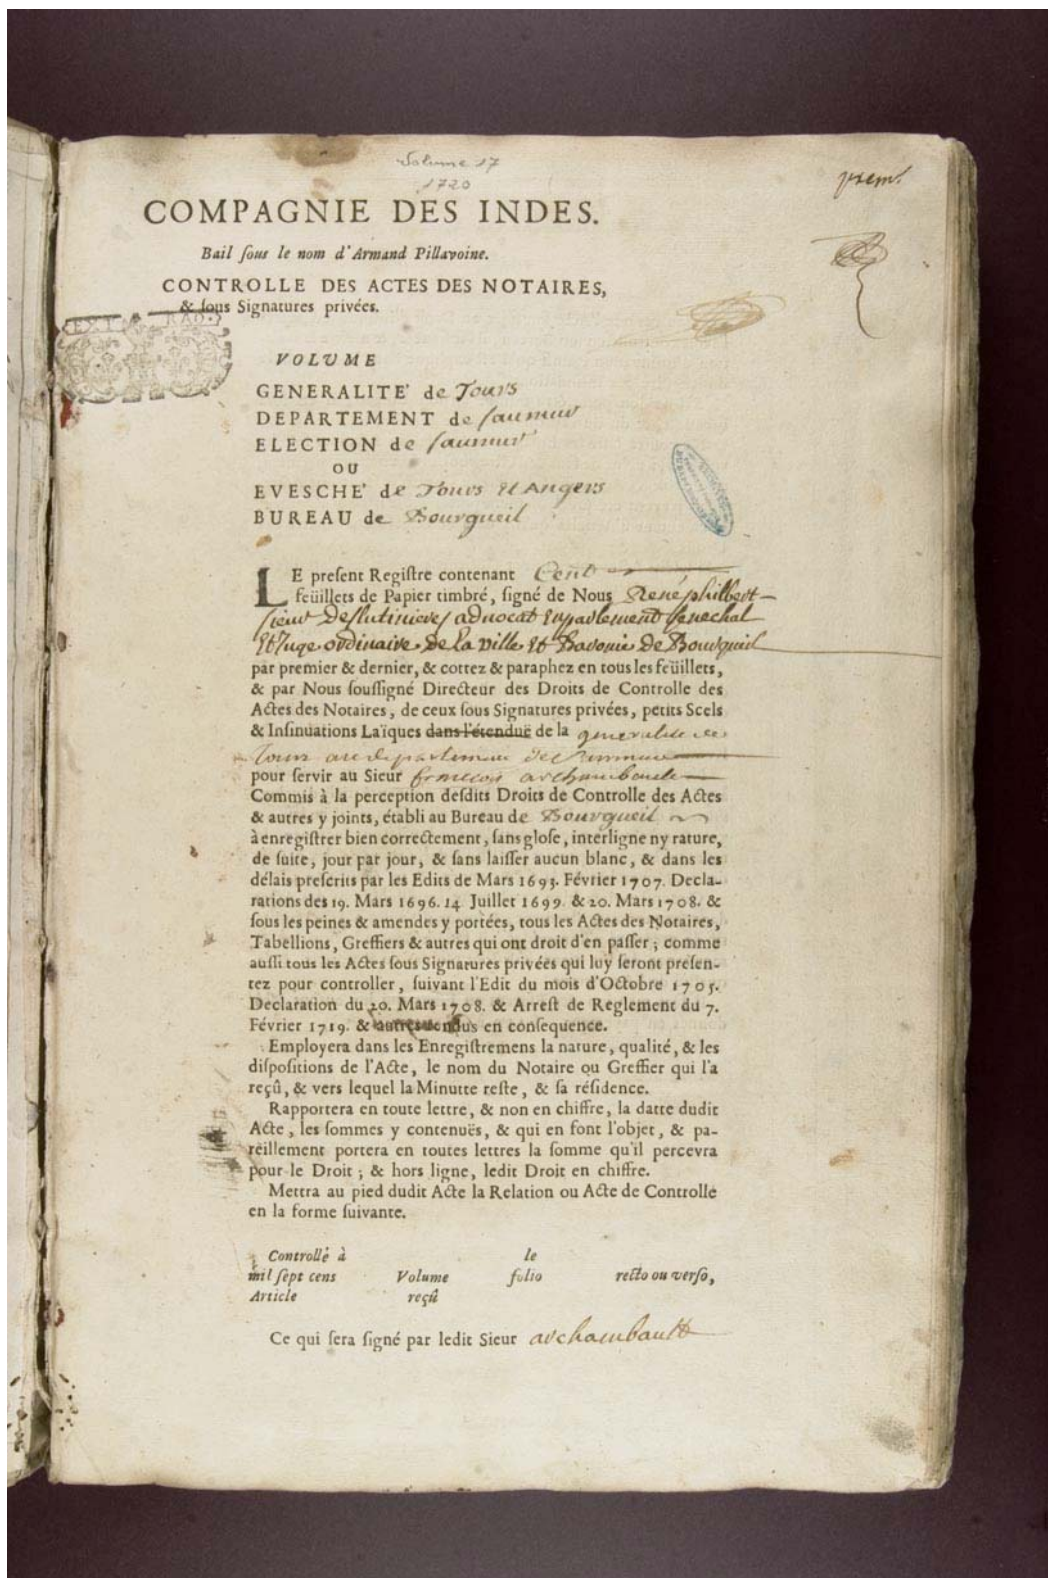 Volume 17
1720
prem.r
COMPAGNIE DES INDES.
Bail ſous le nom d'Armand Pillavoine.
CONTROLLE DES ACTES DES NOTAIRES,
& ſous Signatures privées.
EXT RAO.
VOLUME
GENERALITE' de Tours
DEPARTEMENT de ſaumur
ELECTION de ſaumur
OU
EVESCHE' de Tours Et Angers
BUREAU de Bourgueil
LE preſent Regiſtre contenant Cent
feüillets de Papier timbré, ſigné de Nous René philbert
ſieur Deſlutinieres advocat En parlement ſenechal
Et Juge ordinaire De La ville Et Baronie De Bourgueil
par premier & dernier, & cottez & paraphez en tous les feüillets,
& par Nous ſouſſigné Directeur des Droits de Controlle des
Actes des Notaires, de ceux ſous Signatures privées, petits Scels
& Inſinuations Laïques dans l'étenduë de la generalité de
Tours au departement de Saumur
pour ſervir au Sieur francois archambault
Commis à la perception deſdits Droits de Controlle des Actes
& autres y joints, établi au Bureau de Bourgueil
à enregiſtrer bien correctement, ſans gloſe, interligne ny rature,
de ſuite, jour par jour, & ſans laiſſer aucun blanc, & dans les
délais preſcrits par les Edits de Mars 1693. Février 1707. Decla-
rations des 19. Mars 1696. 14 Juillet 1699. & 20. Mars 1708. &
ſous les peines & amendes y portées, tous les Actes des Notaires,
Tabellions, Greffiers & autres qui ont droit d'en paſſer ; comme
auſſi tous les Actes ſous Signatures privées qui luy ſeront preſen-
tez pour controller, ſuivant l'Edit du mois d'Octobre 1705.
Declaration du 20. Mars 1708. & Arreſt de Reglement du 7.
Février 1719. & autres rendus en conſequence.
Employera dans les Enregiſtremens la nature, qualité, & les
diſpoſitions de l'Acte, le nom du Notaire ou Greffier qui l'a
reçû, & vers lequel la Minutte reſte, & ſa réſidence.
Rapportera en toute lettre, & non en chiffre, la datte dudit
Acte, les ſommes y contenuës, & qui en font l'objet, & pa-
reillement portera en toutes lettres la ſomme qu'il percevra
pour le Droit ; & hors ligne, ledit Droit en chiffre.
Mettra au pied dudit Acte la Relation ou Acte de Controlle
en la forme ſuivante.
Controllé à le
mil ſept cens Volume folio recto ou verſo,
Article reçû
Ce qui ſera ſigné par ledit Sieur archambault